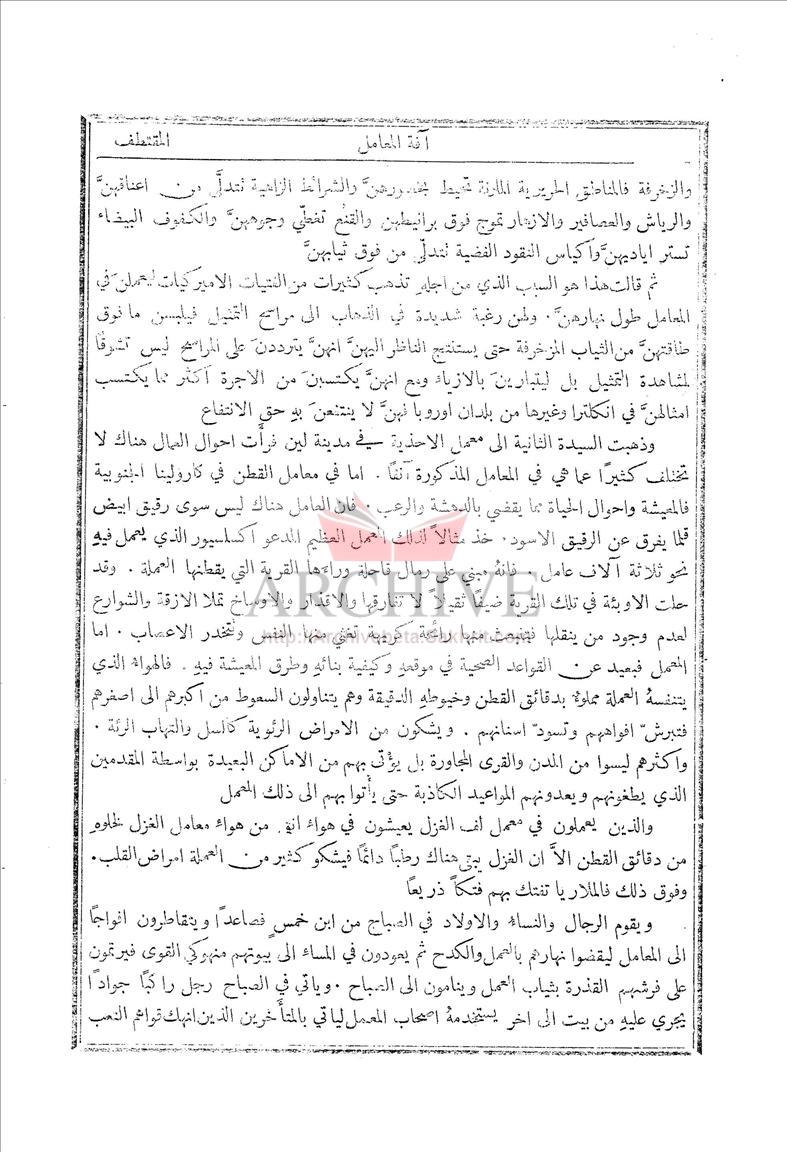 المقتطف
آفة المعامل
والزخرفة فالمناطق الحريرية الملونة تحيط بخصورهنَّ والشرائط الزاهية تتدلَّى من اعناقهنَّ
والرياش والعصافير والازهار تموج فوق برانيطهن والقنُع تغطّي وجوههنَّ والكفوف البيضاء
تستر اياديهنَّ وأكياس النقود الفضية تتدلّى من فوق ثيابهنَّ
ثم قالت هذا هو السبب الذي من اجلهِ تذهب كثيرات من الفتيات الاميركيات ليعملنَ في
المعامل طول نهارهنَّ . ولهن رغبة شديدة في الذهاب الى مراسح التمثيل فيلبسن ما فوق
طاقتهنَّ من الثياب المزخرفة حتى يستنتج الناظر اليهنَّ انهنَّ يترددنَ على المراسح ليس تشوقًا
لمشاهدة التمثيل بل ليتبارينَ بالازياء ومع انهنَّ يكتسبنَ من الاجرة أكثر مما يكتسب
امثالهنَّ في انكلترا وغيرها من بلدان اوروبا فهنَّ لا ينتفعنَ بهِ حق الانتفاع
وذهبت السيدة الثانية الى معمل الاحذية في مدينة لين فرأَت احوال العمال هناك لا
تختلف كثيرًا عما هي في المعامل المذكورة آنفًا . اما في معامل القطن في كارولينا الجنوبية
فالمعيشة واحوال الحياة مما يقضي بالدهشة والرعب . فان العامل هناك ليس سوى رقيق ابيض
قلما يفرق عن الرقيق الاسود . خذ مثالاً لذلك المعمل العظيم المدعو اكسلسيور الذي يعمل فيهِ
نحو ثلاثة آلاف عامل . فانهُ مبني على رمال قاحلة وراءها القرية التي يقطنها العملة . وقد
حلت الاوبئة في تلك القرية ضيفًا ثقيلاً لا تفارقها والاقذار والاوساخ تملأ الازقة والشوارع
لعدم وجود من ينقلها فتنبعث منها رائحة كريهة تغثي منها النفس وتتخدر الاعصاب . اما
المعمل فبعيد عن القواعد الصحية في موقعهِ وكيفية بنائهِ وطرق المعيشة فيهِ . فالهواء الذي
يتنفسهُ العملة مملوءٌ بدقائق القطن وخيوطهِ الدقيقة وهم يتناولون السعوط من اكبرهم الى اصغرهم
فتبرشّ افواههم وتسودّ اسنانهم . ويشكون من الامراض الرئوية كالسل والتهاب الرئة .
واكثرهم ليسوا من المدن والقرى المجاورة بل يؤْتى بهم من الاماكن البعيدة بواسطة المقدمين
الذي يطغونهم ويعدونهم المواعيد الكاذبة حتى يأْتوا بهم الى ذلك المعمل
والذين يعملون في معمل لف الغزل يعيشون في هواء انقى من هواء معامل الغزل لخلوهِ
من دقائق القطن الاَّ ان الغزل يبقى هناك رطبًا دائمًا فيشكو كثير من العملة امراض القلب .
وفوق ذلك فالملاريا تفتك بهم فتكاً ذريعًا
ويقوم الرجال والنساء والاولاد في الصباح من ابن خمسٍ فصاعدًا ويتقاطرون افواجًا
الى المعامل ليقضوا نهارهم بالعمل والكدح ثم يعودون في المساء الى بيوتهم منهوكي القوى فيرتمون
على فرشهم القذرة بثياب العمل وينامون الى الصباح . وياتي في الصباح رجل راكبًا جوادًا
يجري عليهِ من بيت الى اخر يستخدمهُ اصحاب المعمل لياتي بالمتأَخرين الذين انهك قواهم التعب
ARCHIVE